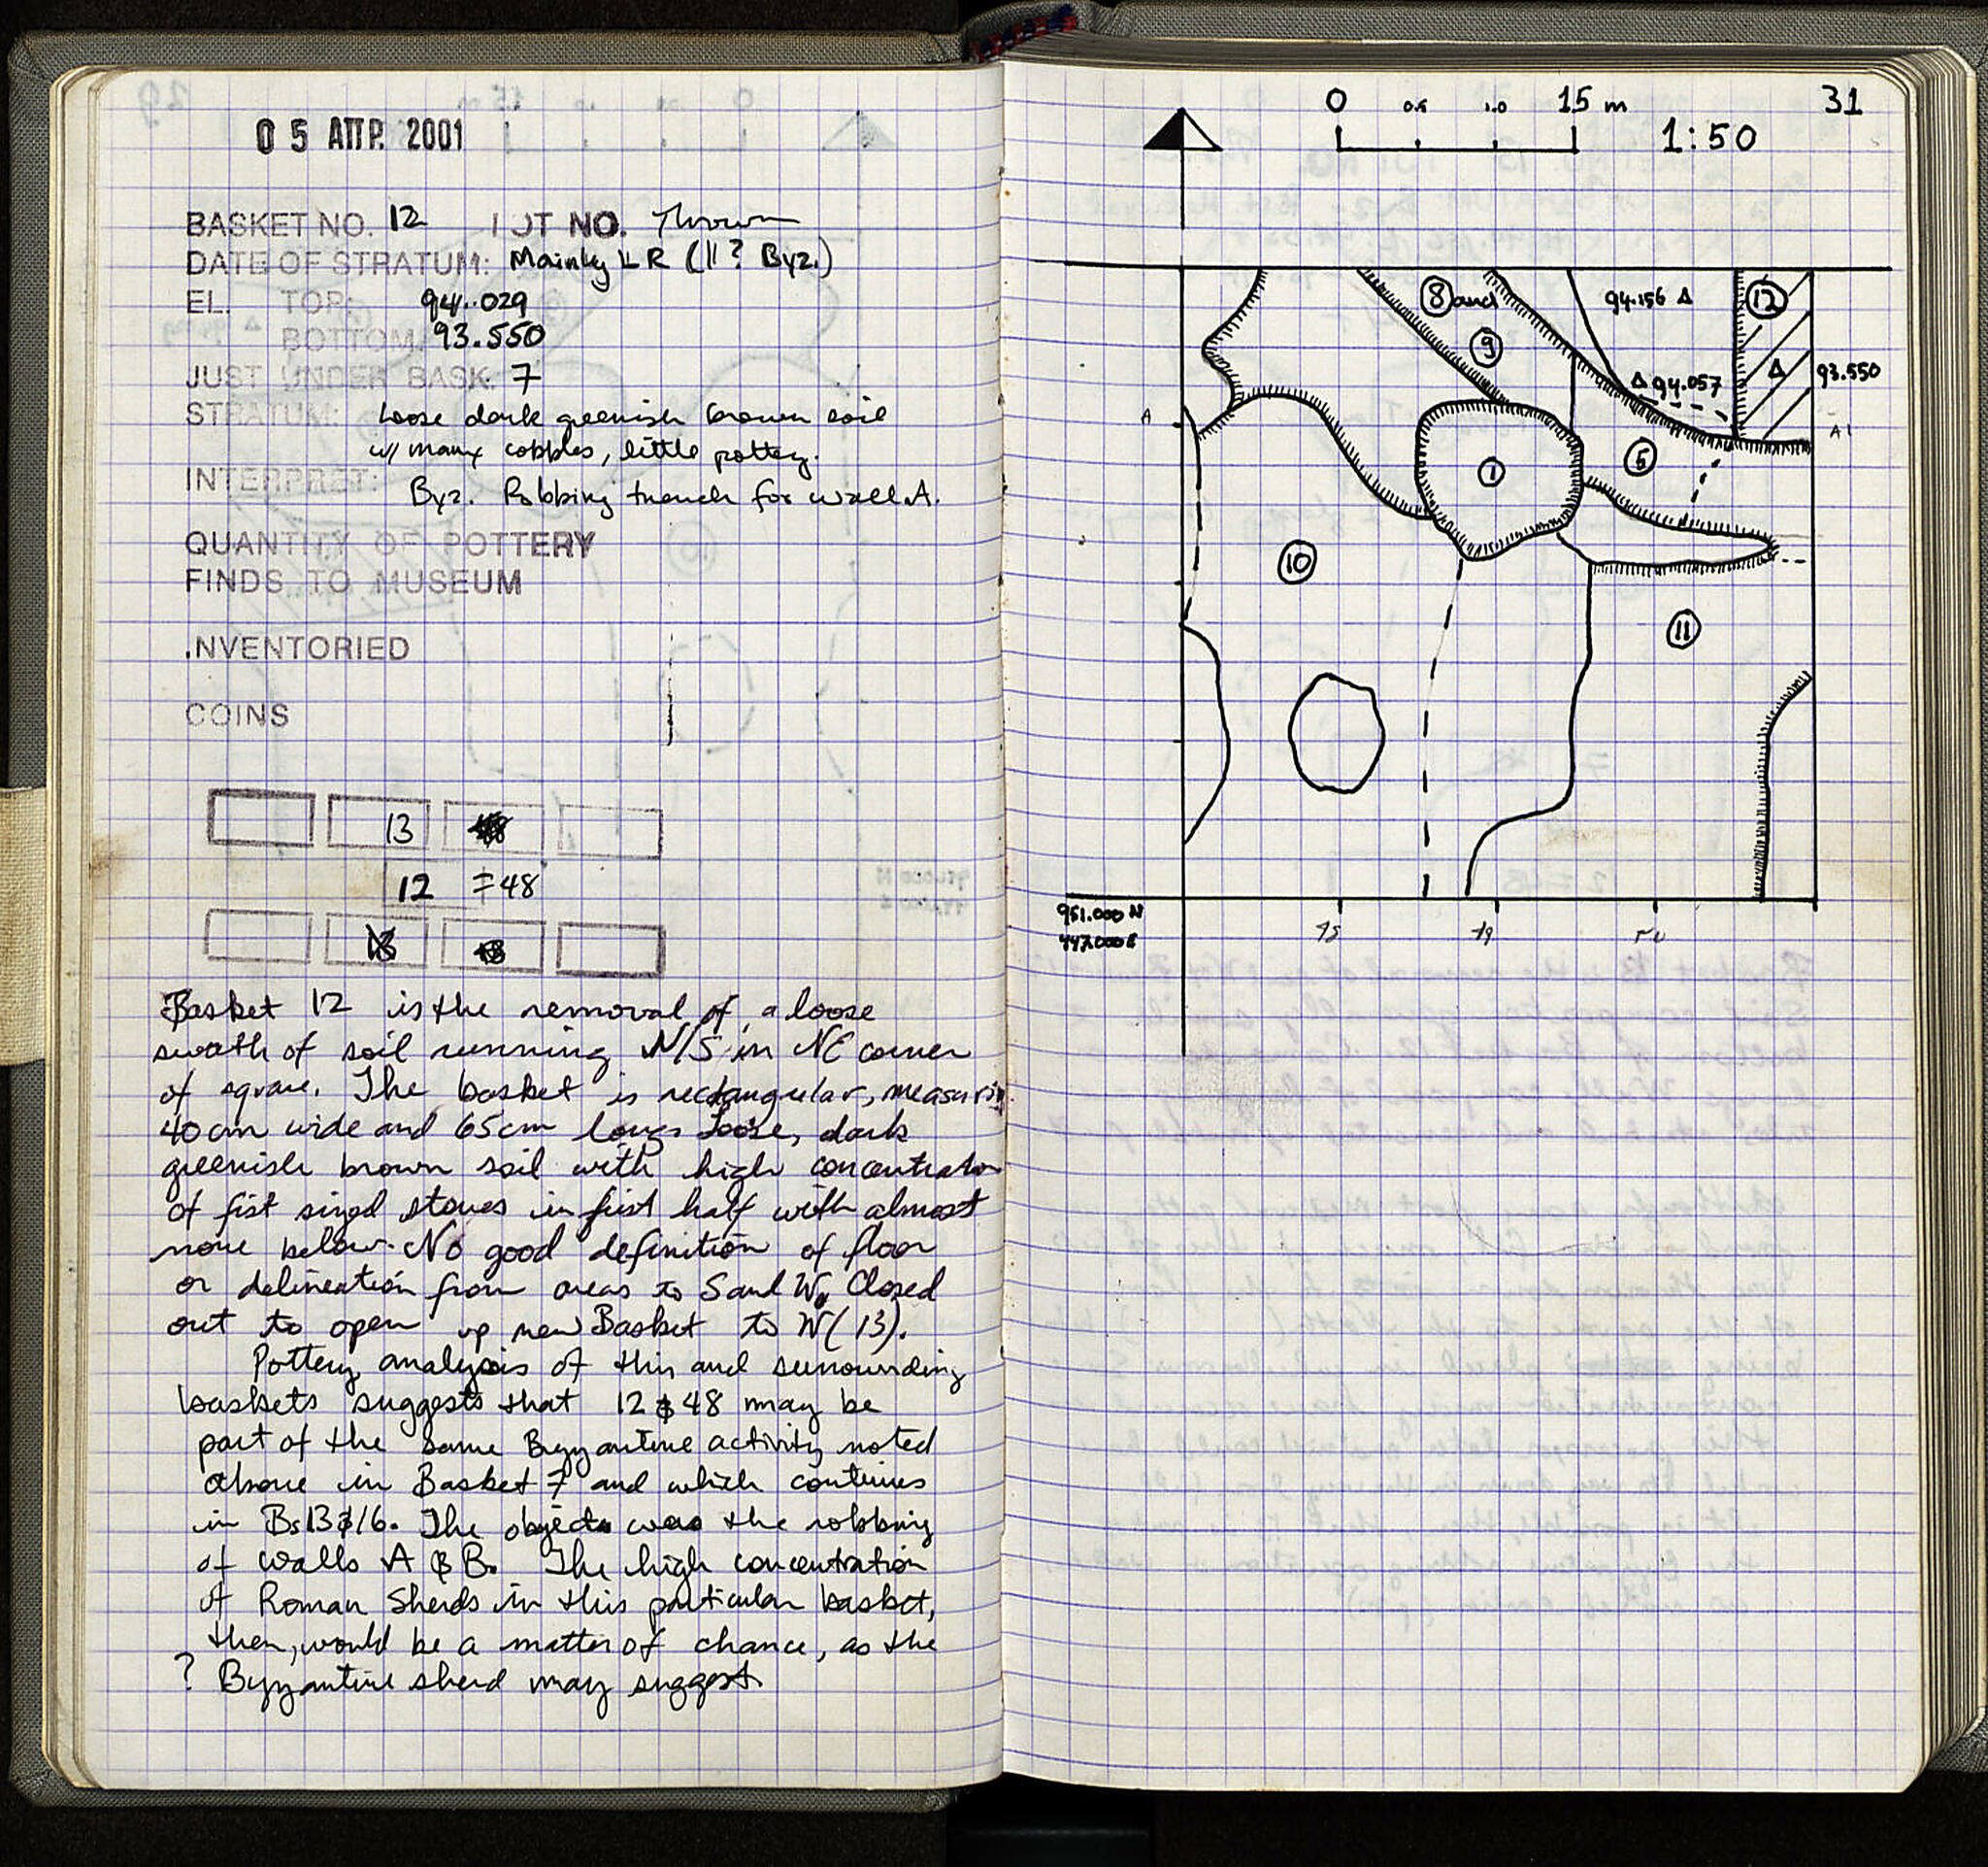 0 5 ΑΠΡ. 2001
BASKET NO. 12 LOT NO. Thrown
DATE OF STRATUM: Mainly LR (1? Byz.)
EL. TOP: 94.029
BOTTOM: 93.550
JUST UNDER BASK. 7
STRATUM: Loose dark greenish brown soil
w/ many cobbles, little pottery.
INTERPRET: Byz. Robbing trench for wall A.
QUANTITY OF POTTERY
FINDS TO MUSEUM
INVENTORIED
COINS
13
12 = 48
Basket 12 is the removal of a loose
swath of soil running N/S in NE corner
of square. The basket is rectangular, measuring
40cm wide and 65cm long. Loose, dark
greenish brown soil with high concentration
of fist sized stones in first half with almost
none below. No good definition of floor
or delineation from areas to S and W. Closed
out to open up new Basket to W (13).
Pottery analysis of this and surrounding
baskets suggests that 12 & 48 may be
part of the same Byzantine activity noted
above in Basket 7 and which continues
in Bs 13 & 16. The object was the robbing
of walls A & B. The high concentration
of Roman Sherds in this particular basket,
then, would be a matter of chance, as the
? Byzantine sherd may suggest.
31
0 0.5 1.0 15 m
1:50
8 and 9
94.156 Δ
12
Δ 94.057
Δ 93.550
A
A1
1
10
11
951.000 N
447.000 E